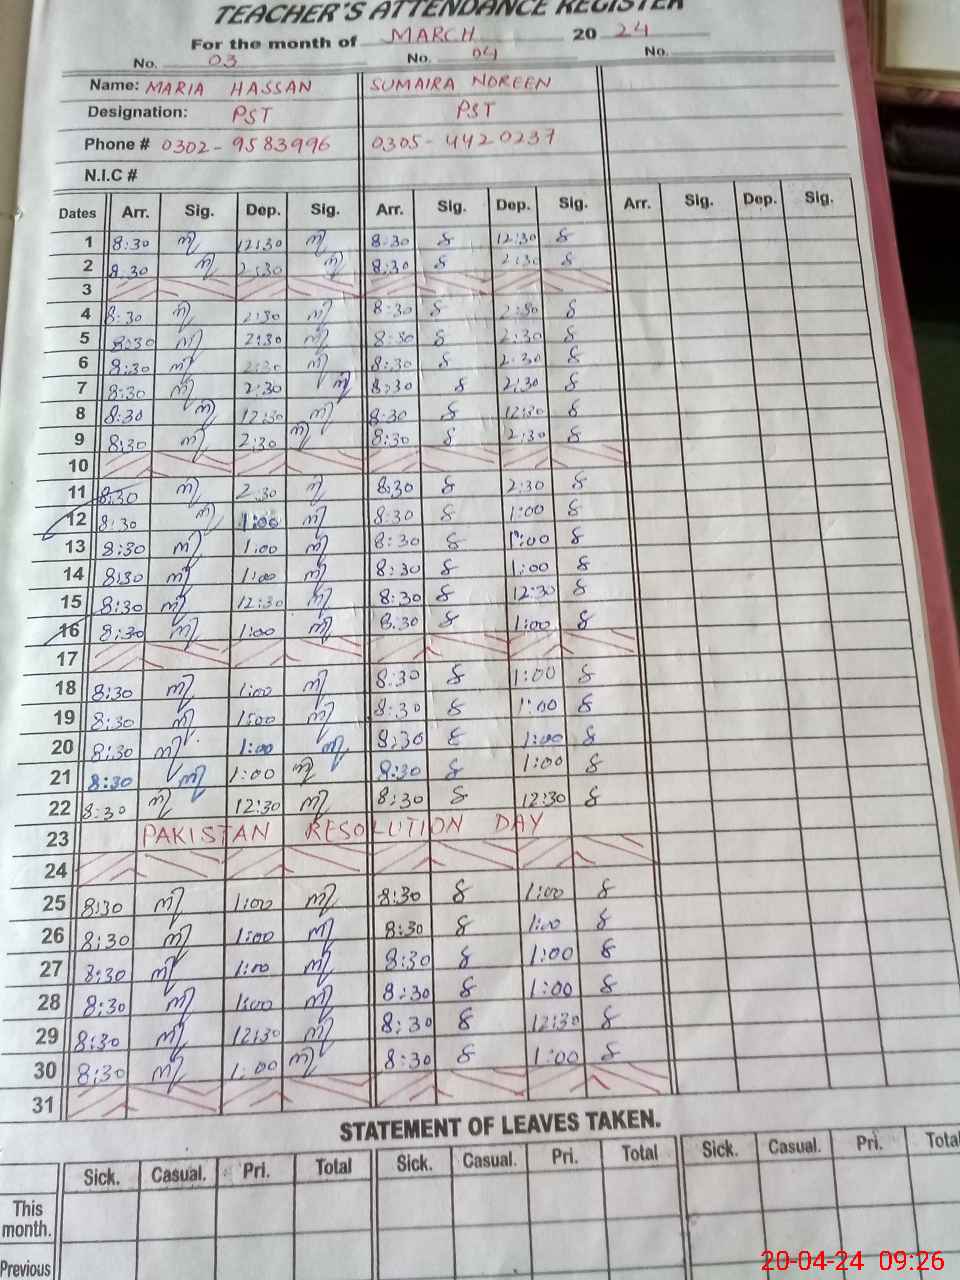 TEACHER'S ATTENDANCE REGISTER
For the month of MARCH 20 24
No. 03 No. 04 No.
Name: MARIA HASSAN SUMAIRA NOREEN
Designation: PST PST
Phone # 0302-9583996 0305-4420237
N.I.C #
Dates Arr. Sig. Dep. Sig. Arr. Sig. Dep. Sig. Arr. Sig. Dep. Sig.
1 8:30 12:30 8:30 12:30
2 8:30 2:30 8:30 2:30
3
4 8:30 2:30 8:30 2:30
5 8:30 2:30 8:30 2:30
6 8:30 2:30 8:30 2:30
7 8:30 2:30 8:30 2:30
8 8:30 12:30 8:30 12:30
9 8:30 2:30 8:30 2:30
10
11 8:30 2:30 8:30 2:30
12 8:30 1:00 8:30 1:00
13 8:30 1:00 8:30 1:00
14 8:30 1:00 8:30 1:00
15 8:30 12:30 8:30 12:30
16 8:30 1:00 8:30 1:00
17
18 8:30 1:00 8:30 1:00
19 8:30 1:00 8:30 1:00
20 8:30 1:00 8:30 1:00
21 8:30 1:00 8:30 1:00
22 8:30 12:30 8:30 12:30
23 PAKISTAN RESOLUTION DAY
24
25 8:30 1:00 8:30 1:00
26 8:30 1:00 8:30 1:00
27 8:30 1:00 8:30 1:00
28 8:30 1:00 8:30 1:00
29 8:30 12:30 8:30 12:30
30 8:30 1:00 8:30 1:00
31
STATEMENT OF LEAVES TAKEN.
Sick. Casual. Pri. Total Sick. Casual. Pri. Total Sick. Casual. Pri. Total
This
month.
Previous
20-04-24 09:26